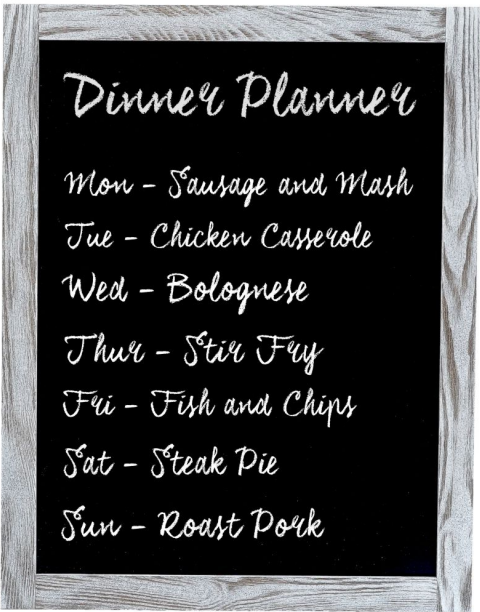 Dinner Planner
Mon - Sausage and Mash
Tue - Chicken Casserole
Wed - Bolognese
Thur - Stir Fry
Fri - Fish and Chips
Sat - Steak Pie
Sun - Roast Pork